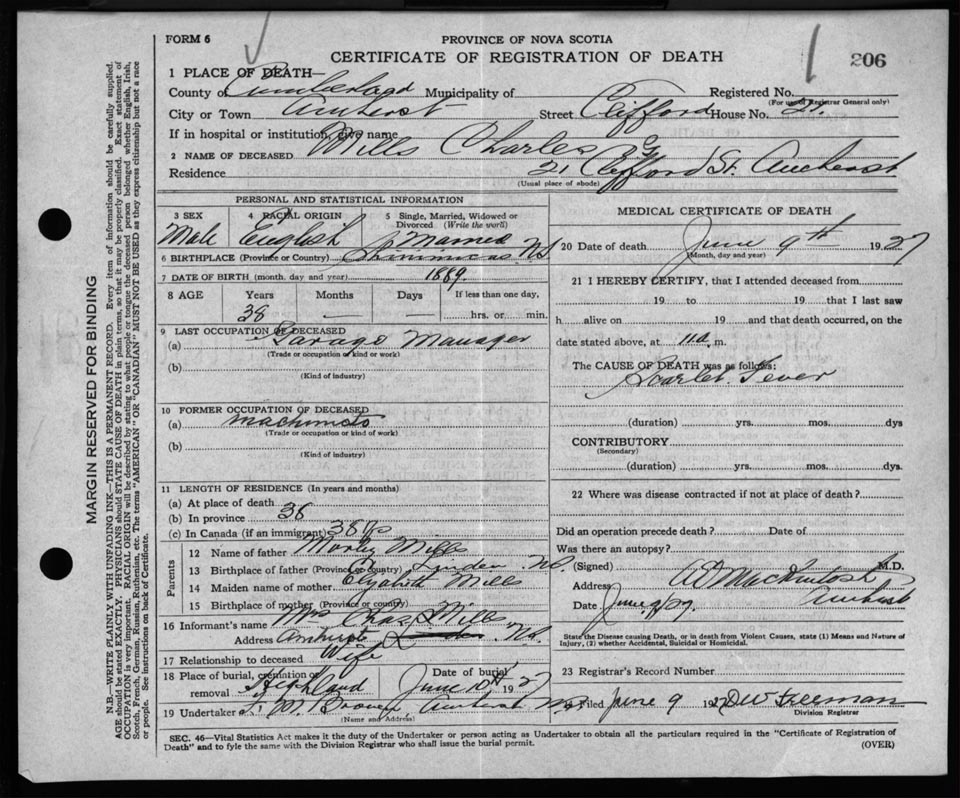 FORM 6
PROVINCE OF NOVA SCOTIA
CERTIFICATE OF REGISTRATION OF DEATH
206
1 PLACE OF DEATH—
County of Cumberland Municipality of Registered No.
(For use of Registrar General only)
City or Town Amherst Street Clifford House No. 21
If in hospital or institution, give name
2 NAME OF DECEASED Mills Charles G
Residence 21 Clifford St. Amherst
(Usual place of abode)
PERSONAL AND STATISTICAL INFORMATION
3 SEX 4 RACIAL ORIGIN 5 Single, Married, Widowed or Divorced (Write the word)
Male English Married
6 BIRTHPLACE (Province or Country) Shinimicas N.S.
7 DATE OF BIRTH (month, day and year) 1889.
8 AGE Years Months Days If less than one day,
38 — — hrs. or min.
9 LAST OCCUPATION OF DECEASED
(a) Garage Manager
(Trade or occupation or kind or work)
(b)
(Kind of industry)
10 FORMER OCCUPATION OF DECEASED
(a) Machinist
(Trade or occupation or kind of work)
(b)
(Kind of industry)
11 LENGTH OF RESIDENCE (In years and months)
(a) At place of death
(b) In province 38
(c) In Canada (if an immigrant) 38 yrs
Parents
12 Name of father Morley Mills
13 Birthplace of father (Province or Country) Linden N.S.
14 Maiden name of mother Elizabeth Mills
15 Birthplace of mother (Province or country)
16 Informant's name Mrs Chas Mills
Address Amherst N.S.
17 Relationship to deceased Wife
18 Place of burial, cremation or removal Highland Date of burial June 10th 1927
19 Undertaker Brown, Amherst N.S.
(Name and Address)
MEDICAL CERTIFICATE OF DEATH
20 Date of death June 9th 1927
(Month, day and year)
21 I HEREBY CERTIFY, that I attended deceased from
19 to 19 that I last saw
h alive on 19 and that death occurred, on the
date stated above, at 11 a. m.
The CAUSE OF DEATH was as follows:
Scarlet Fever
(duration) yrs. mos. dys
CONTRIBUTORY
(Secondary)
(duration) yrs. mos. dys.
22 Where was disease contracted if not at place of death?
Did an operation precede death? Date of
Was there an autopsy?
(Signed) MacKintosh M.D.
Address Amherst
Date June 9/27.
State the Disease causing Death, or in death from Violent Causes, state (1) Means and Nature of
Injury, (2) whether Accidental, Suicidal or Homicidal.
23 Registrar's Record Number
Filed June 9 1927 D W Freeman
Division Registrar
SEC. 46—Vital Statistics Act makes it the duty of the Undertaker or person acting as Undertaker to obtain all the particulars required in the "Certificate of Registration of
Death" and to fyle the same with the Division Registrar who shall issue the burial permit.
(OVER)
MARGIN RESERVED FOR BINDING
N.B.—WRITE PLAINLY WITH UNFADING INK—THIS IS A PERMANENT RECORD. Every item of information should be carefully supplied.
AGE should be stated EXACTLY. PHYSICIANS should STATE CAUSE OF DEATH in plain terms, so that it may be properly classified. Exact statement of
OCCUPATION is very important. RACIAL ORIGIN will be described by stating to what people or tongue the deceased person belonged, whether English, Irish,
Scotch, French, German, Russian, Ruthenian, etc. The terms "AMERICAN" OR "CANADIAN" MUST NOT BE USED as they express citizenship but not a race
or people. See instructions on back of Certificate.